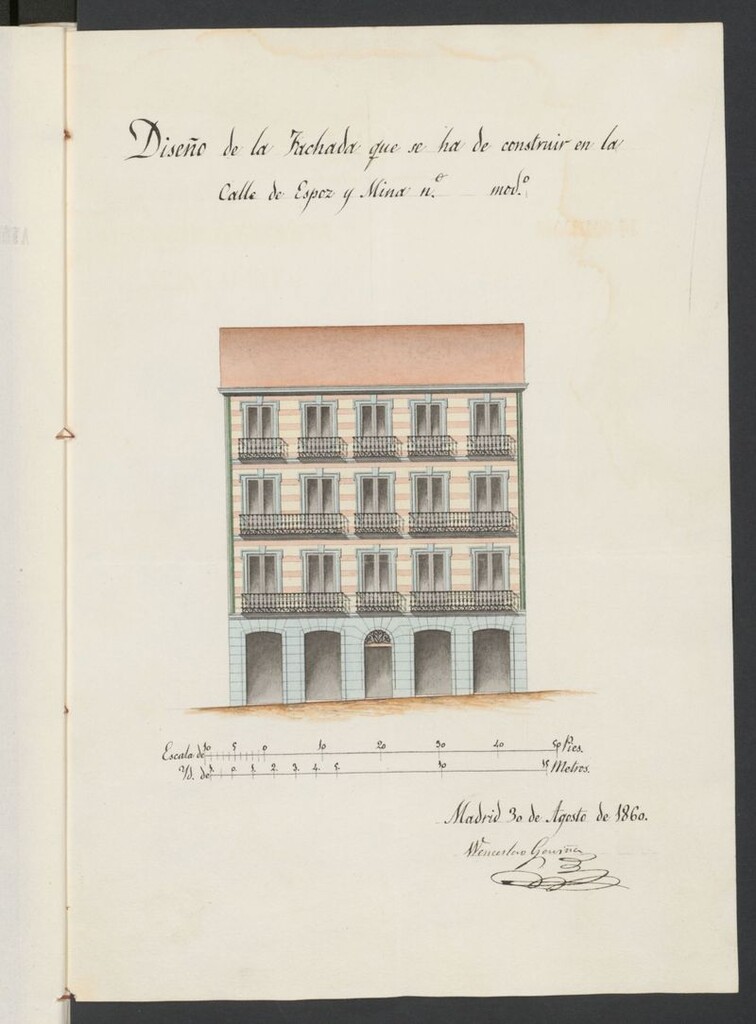 Diseño de la Fachada que se ha de construir en la
Calle de Espoz y Mina n.º mod.º
Escala de 10 5 0 10 20 30 40 50 Pies.
Yd. de 1. 0. 1. 2. 3. 4. 5. 10 15 Metros.
Madrid 30 de Agosto de 1860.
Wenceslao Gaviña